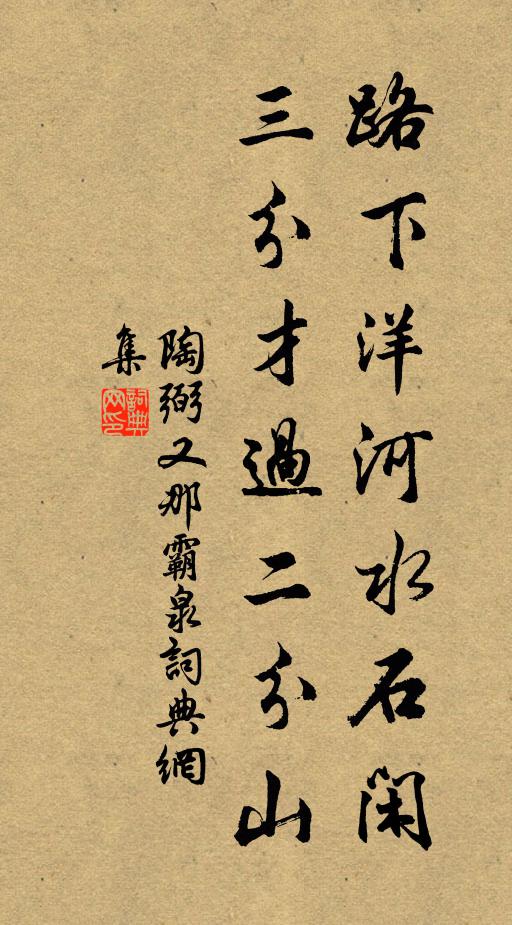 路下洋河水石閑
三分才過二分山
陶弼又那霸泉詞典網
集
詞典
网印